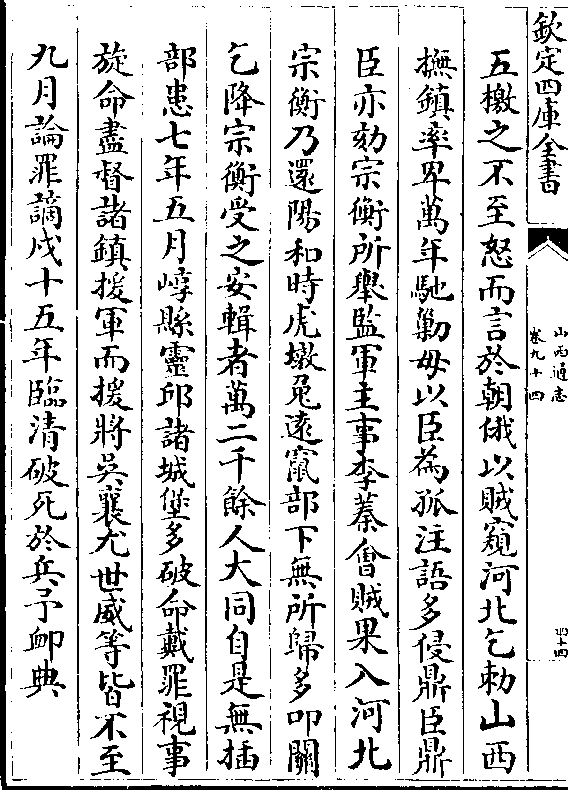 欽定四庫全書
山西通志
卷九十四
四十四
五檄之不至怒而言於朝俄以賊窺河北乞勅山西
撫鎮率卑萬年馳勦毋以臣為孤注語多侵鼎臣鼎
臣亦劾宗衡所舉監軍主事李蓁會賊果入河北
宗衡乃還陽和時虎墩兔遠竄部下無所歸多叩關
乞降宗衡受之安輯者萬二千餘人大同自是無插
部患七年五月崞縣靈邱諸城堡多破命戴罪視事
旋命盡督諸鎮援軍而援將吳襄尤世威等皆不至
九月論罪謫戍十五年臨清破死於兵予卹典